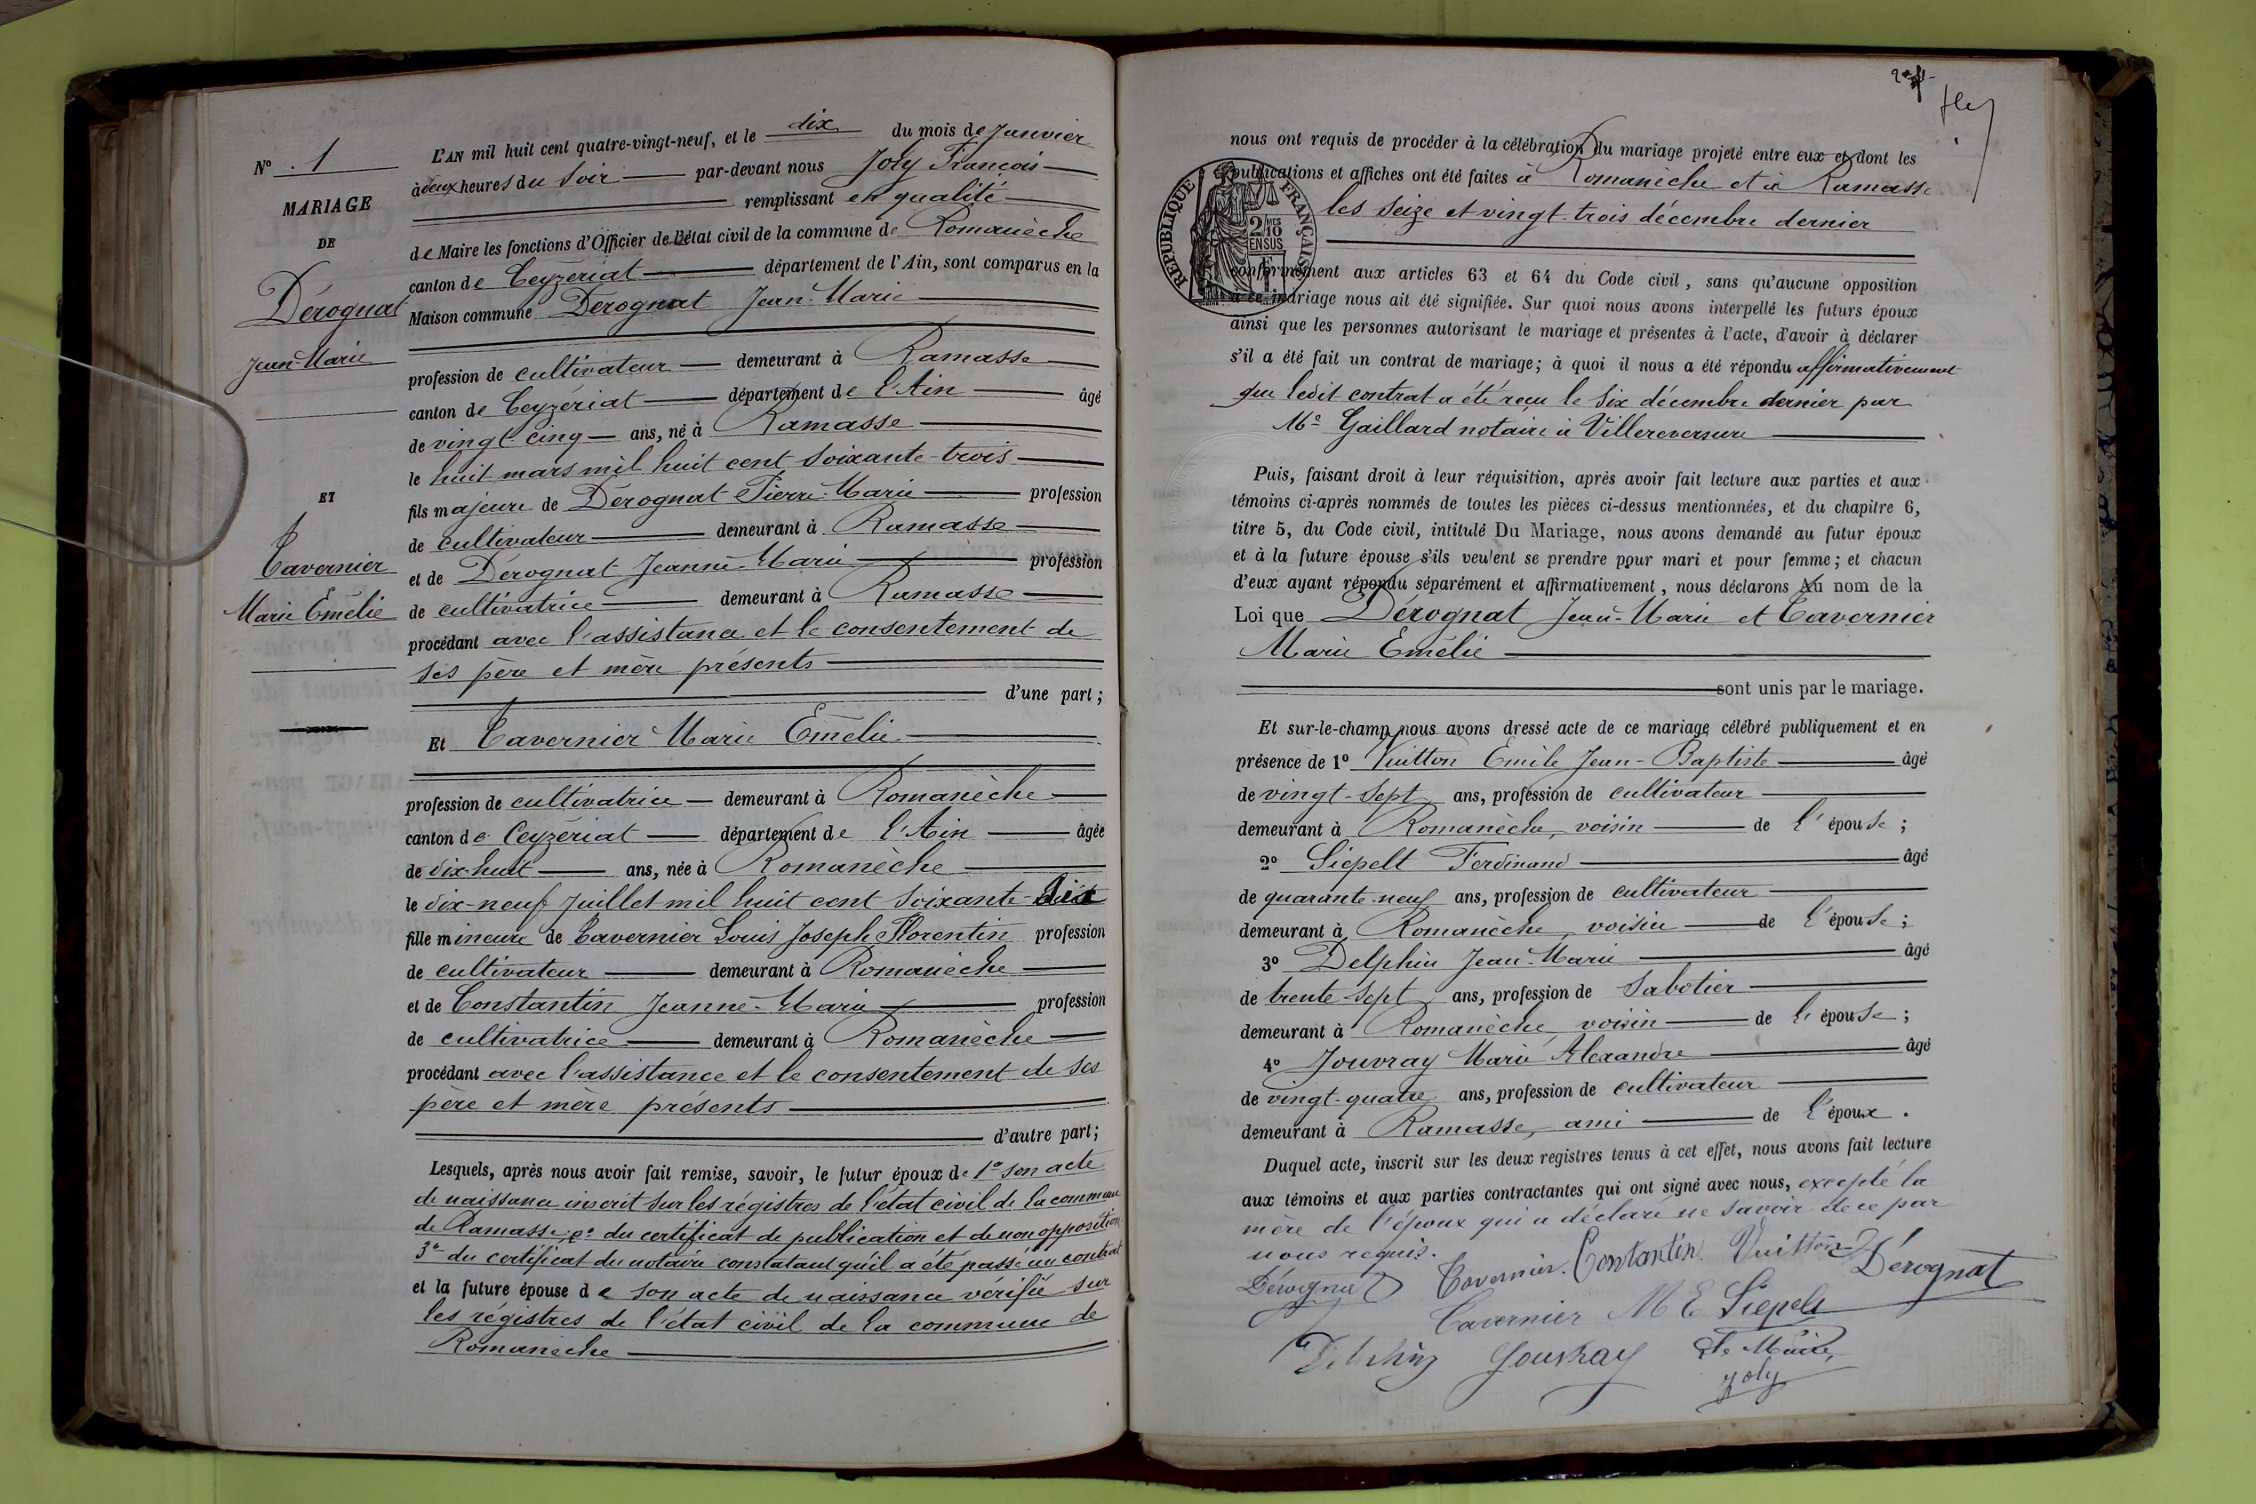 N° 1
MARIAGE
DE
Dérognat
Jean-Marie
ET
Tavernier
Marie Emélie
L'AN mil huit cent quatre-vingt-neuf, et le dix du mois de Janvier
à deux heures du soir par-devant nous Joly François
remplissant en qualité
de Maire les fonctions d'Officier de l'état civil de la commune de Romanèche
canton de Ceyzériat département de l'Ain, sont comparus en la
Maison commune Dérognat Jean-Marie
profession de cultivateur demeurant à Ramasse
canton de Ceyzériat département de l'Ain âgé
de vingt-cinq ans, né à Ramasse
le huit mars mil huit cent soixante-trois
fils majeure de Dérognat Pierre-Marie profession
de cultivateur demeurant à Ramasse
et de Dérognat Jeanne-Marie profession
de cultivatrice demeurant à Ramasse
procédant avec l'assistance et le consentement de
ses père et mère présents
d'une part;
Et Tavernier Marie Emélie
profession de cultivatrice demeurant à Romanèche
canton de Ceyzériat département de l'Ain âgée
de dix-huit ans, née à Romanèche
le dix-neuf Juillet mil huit cent soixante-dix
fille mineure de Tavernier Louis Joseph Florentin profession
de cultivateur demeurant à Romanèche
et de Constantin Jeanne-Marie profession
de cultivatrice demeurant à Romanèche
procédant avec l'assistance et le consentement de ses
père et mère présents
d'autre part;
Lesquels, après nous avoir fait remise, savoir, le futur époux de 1° son acte
de naissance inscrit sur les régistres de l'état civil de la commune
de Ramasse; 2° du certificat de publication et de non opposition
3° du certificat du notaire constatant qu'il a été passé un contrat
et la future épouse de son acte de naissance vérifié sur
les régistres de l'état civil de la commune de
Romanèche
nous ont requis de procéder à la célébration du mariage projeté entre eux et dont les
publications et affiches ont été faites à Romanèche et à Ramasse
les seize et vingt-trois décembre dernier
RÉPUBLIQUE FRANÇAISE
2/10 EN SUS
conformément aux articles 63 et 64 du Code civil, sans qu'aucune opposition
à ce mariage nous ait été signifiée. Sur quoi nous avons interpellé les futurs époux
ainsi que les personnes autorisant le mariage et présentes à l'acte, d'avoir à déclarer
s'il a été fait un contrat de mariage; à quoi il nous a été répondu affirmativement
que ledit contrat a été reçu le six décembre dernier par
Me Gaillard notaire à Villereversure
Puis, faisant droit à leur réquisition, après avoir fait lecture aux parties et aux
témoins ci-après nommés de toutes les pièces ci-dessus mentionnées, et du chapitre 6,
titre 5, du Code civil, intitulé Du Mariage, nous avons demandé au futur époux
et à la future épouse s'ils veulent se prendre pour mari et pour femme; et chacun
d'eux ayant répondu séparément et affirmativement, nous déclarons Au nom de la
Loi que Dérognat Jean-Marie et Tavernier
Marie Emélie
sont unis par le mariage.
Et sur-le-champ nous avons dressé acte de ce mariage célébré publiquement et en
présence de 1° Vuitton Emile Jean-Baptiste âgé
de vingt-sept ans, profession de cultivateur
demeurant à Romanèche, voisin de l'épouse;
2° Siepelt Ferdinand âgé
de quarante-neuf ans, profession de cultivateur
demeurant à Romanèche, voisin de l'épouse;
3° Delphin Jean-Marie âgé
de trente-sept ans, profession de sabotier
demeurant à Romanèche voisin de l'épouse;
4° Jouvray Marie Alexandre âgé
de vingt-quatre ans, profession de cultivateur
demeurant à Ramasse, ami de l'époux.
Duquel acte, inscrit sur les deux registres tenus à cet effet, nous avons fait lecture
aux témoins et aux parties contractantes qui ont signé avec nous, excepté la
mère de l'époux qui a déclaré ne savoir de ce par
nous requis.
Dérognat Tavernier Constantin Vuitton E Dérognat
Tavernier M E Siepelt
Delphin Jouvray Le Maire,
Joly